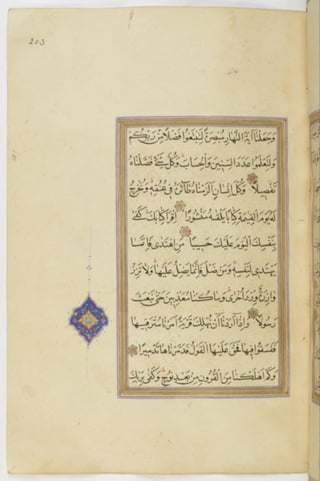 203
وَجَعَلْنَا آيَةَ النَّهَارِ مُبْصِرَةً لِتَبْتَغُوا فَضْلًا مِنْ رَبِّكُمْ
وَلِتَعْلَمُوا عَدَدَ السِّنِينَ وَالْحِسَابَ وَكُلَّ شَيْءٍ فَصَّلْنَاهُ
تَفْصِيلًا وَكُلَّ إِنْسَانٍ أَلْزَمْنَاهُ طَائِرَهُ فِي عُنُقِهِ وَنُخْرِجُ
لَهُ يَوْمَ الْقِيٰمَةِ كِتَابًا يَلْقٰيهُ مَنْشُورًا اِقْرَأْ كِتَابَكَ كَفٰى
بِنَفْسِكَ الْيَوْمَ عَلَيْكَ حَسِيبًا مَنِ اهْتَدٰى فَإِنَّمَا
يَهْتَدِي لِنَفْسِهِ وَمَنْ ضَلَّ فَإِنَّمَا يَضِلُّ عَلَيْهَا وَلَا تَزِرُ
وَازِرَةٌ وِزْرَ أُخْرٰى وَمَا كُنَّا مُعَذِّبِينَ حَتّٰى نَبْعَثَ
رَسُولًا وَإِذَا أَرَدْنَا أَنْ نُهْلِكَ قَرْيَةً أَمَرْنَا مُتْرَفِيهَا
فَفَسَقُوا فِيهَا فَحَقَّ عَلَيْهَا الْقَوْلُ فَدَمَّرْنَاهَا تَدْمِيرًا
وَكَمْ أَهْلَكْنَا مِنَ الْقُرُونِ مِنْ بَعْدِ نُوحٍ وَكَفٰى بِرَبِّكَ